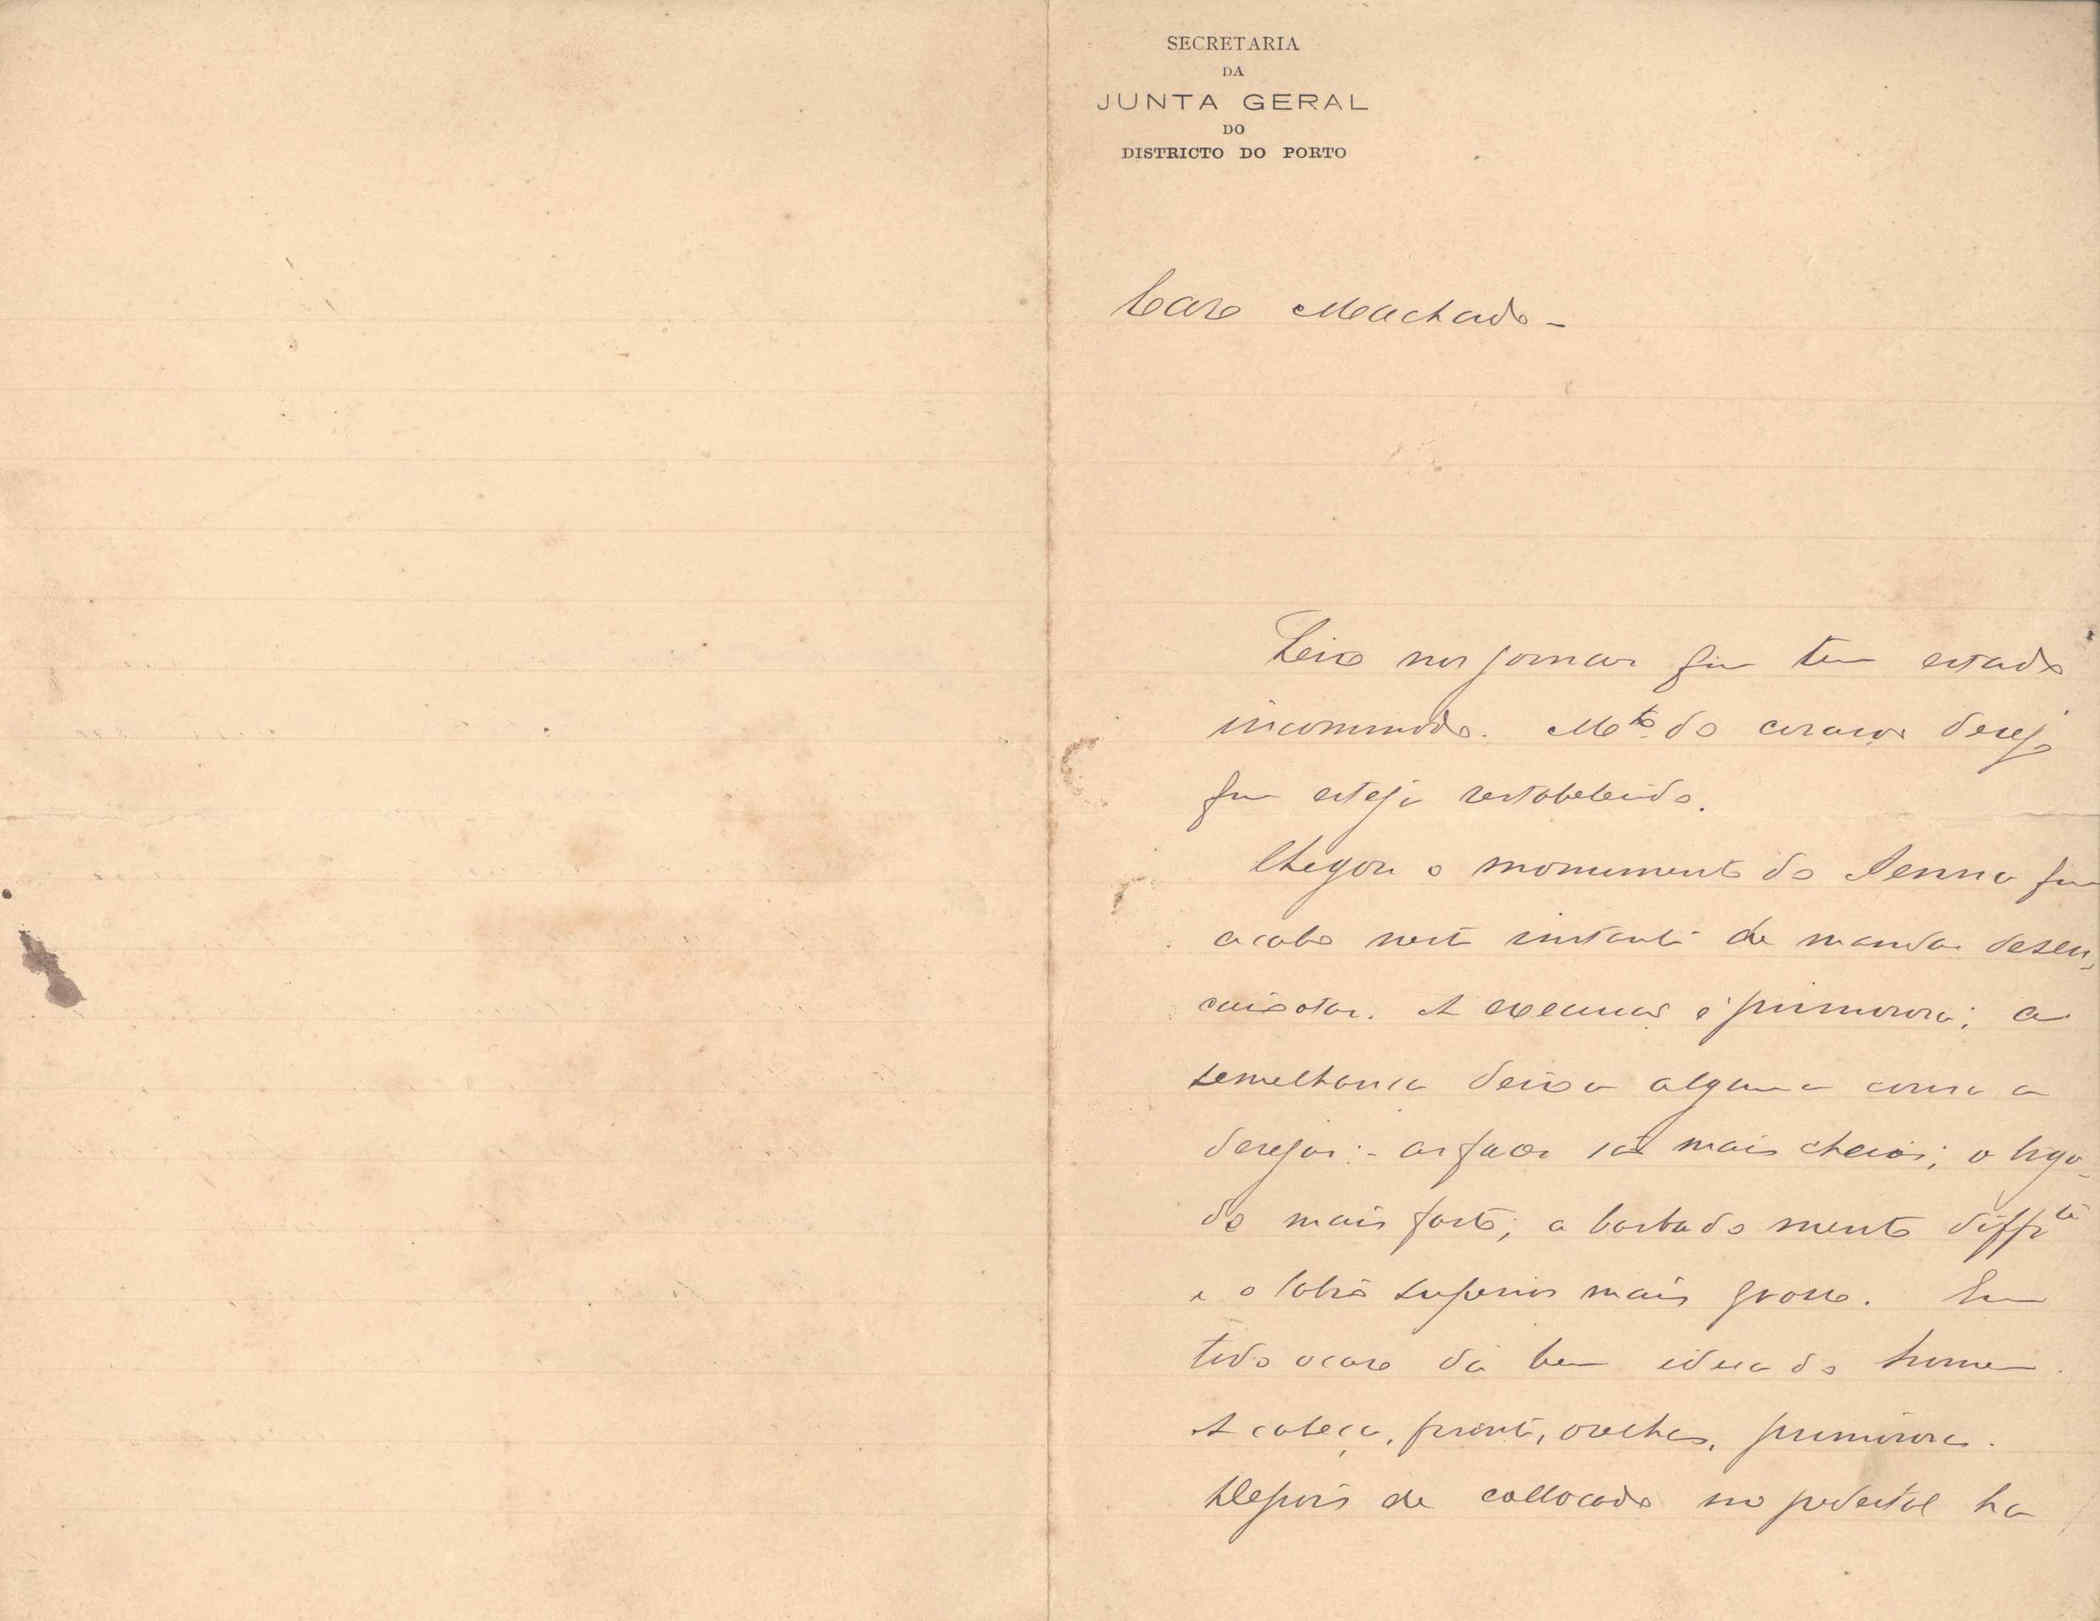 SECRETARIA
DA
JUNTA GERAL
DO
DISTRICTO DO PORTO
Caro Machado –
Leio nos jornaes que tem estado
incommodo. Mto do coração desejo
que esteja restabelecido.
Chegou o monumento do Penna que
acabo neste instante de mandar desen-
caixotar. A execução é primorosa; a
semelhança deixa alguma cousa a
desejar: - as faces são mais cheias; o bigo-
de mais forte; a barba do mento diffte
e o labio superior mais grosso. Em
todo o caso dá bem idea do homem.
A cabeça, fronte, orelhas, primorosas.
Depois de collocado no pedestal ha